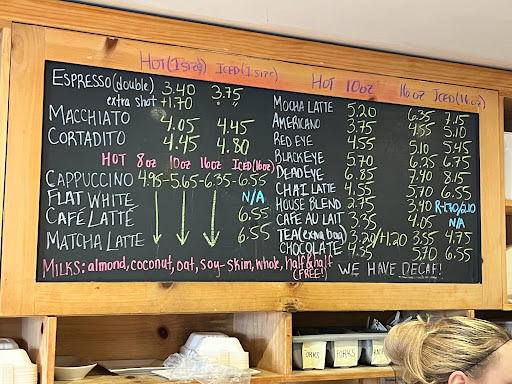 HOT (1 size) ICED (1 size)
ESPRESSO (double) 3.40 3.75
extra shot +1.70
MACCHIATO 4.05 4.45
CORTADITO 4.45 4.80
HOT 8oz 10oz 16oz ICED (16oz)
CAPPUCCINO 4.95-5.65-6.35-6.55
FLAT WHITE N/A
CAFÉ LATTÉ 6.55
MATCHA LATTE 6.55
HOT 10oz 16oz ICED (16oz)
MOCHA LATTE 5.20 6.35 7.15
AMERICANO 3.75 4.55 5.10
RED EYE 4.55 5.10 5.45
BLACK EYE 5.70 6.25 6.75
DEAD EYE 6.85 7.40 8.15
CHAI LATTE 4.55 5.70 6.55
HOUSE BLEND 2.75 3.40
CAFE AU LAIT 3.35 4.05 N/A
TEA (extra bag) 3.20/+1.20 3.55 4.75
CHOCOLATE 4.35 5.70 6.55
MILKS: almond, coconut, oat, soy-skim, whole, half & half
(FREE!)
WE HAVE DECAF!
FORKS FORKS